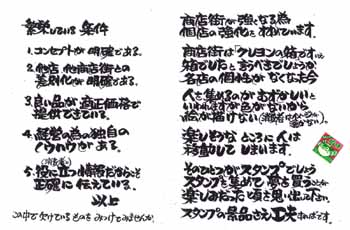 繁栄している条件
1.コンセプトが明確である。
2.他店、他商店街との
差別化が明確である。
3.良い品が適正価格で
提供できている。
4.経営の為の独自の
ノウハウがある。
(消費者に)
5.役に立つ情報だからこそ
正確に伝えている。
以上
この中で欠けているものを みつけてみませんか。
商店街が強くなる為
個店の強化をされています。
商店街は「クレヨンの箱です」いい
箱でしたと言うべきでしょうか
名店の個性がなくなった今
人を集めるのがむずかしい
といわれますが色がないから
絵が描けない
楽しそうな ところに人は
移動してしまいます。
そのひとつがスタンプでしょう
スタンプを集めて夢を買うことが
楽しみだった頃を思い出して下さい。
スタンプの景品さえ工夫すればです。